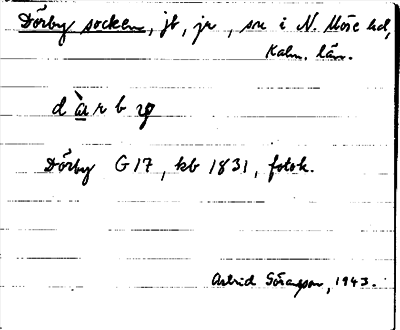 Dörby socken, jb, jr, sn i N. Möre hd,
Kalm. län.
d à r b y
Dörby G 17, kb 1831, fotok.
Astrid Göransson, 1943.